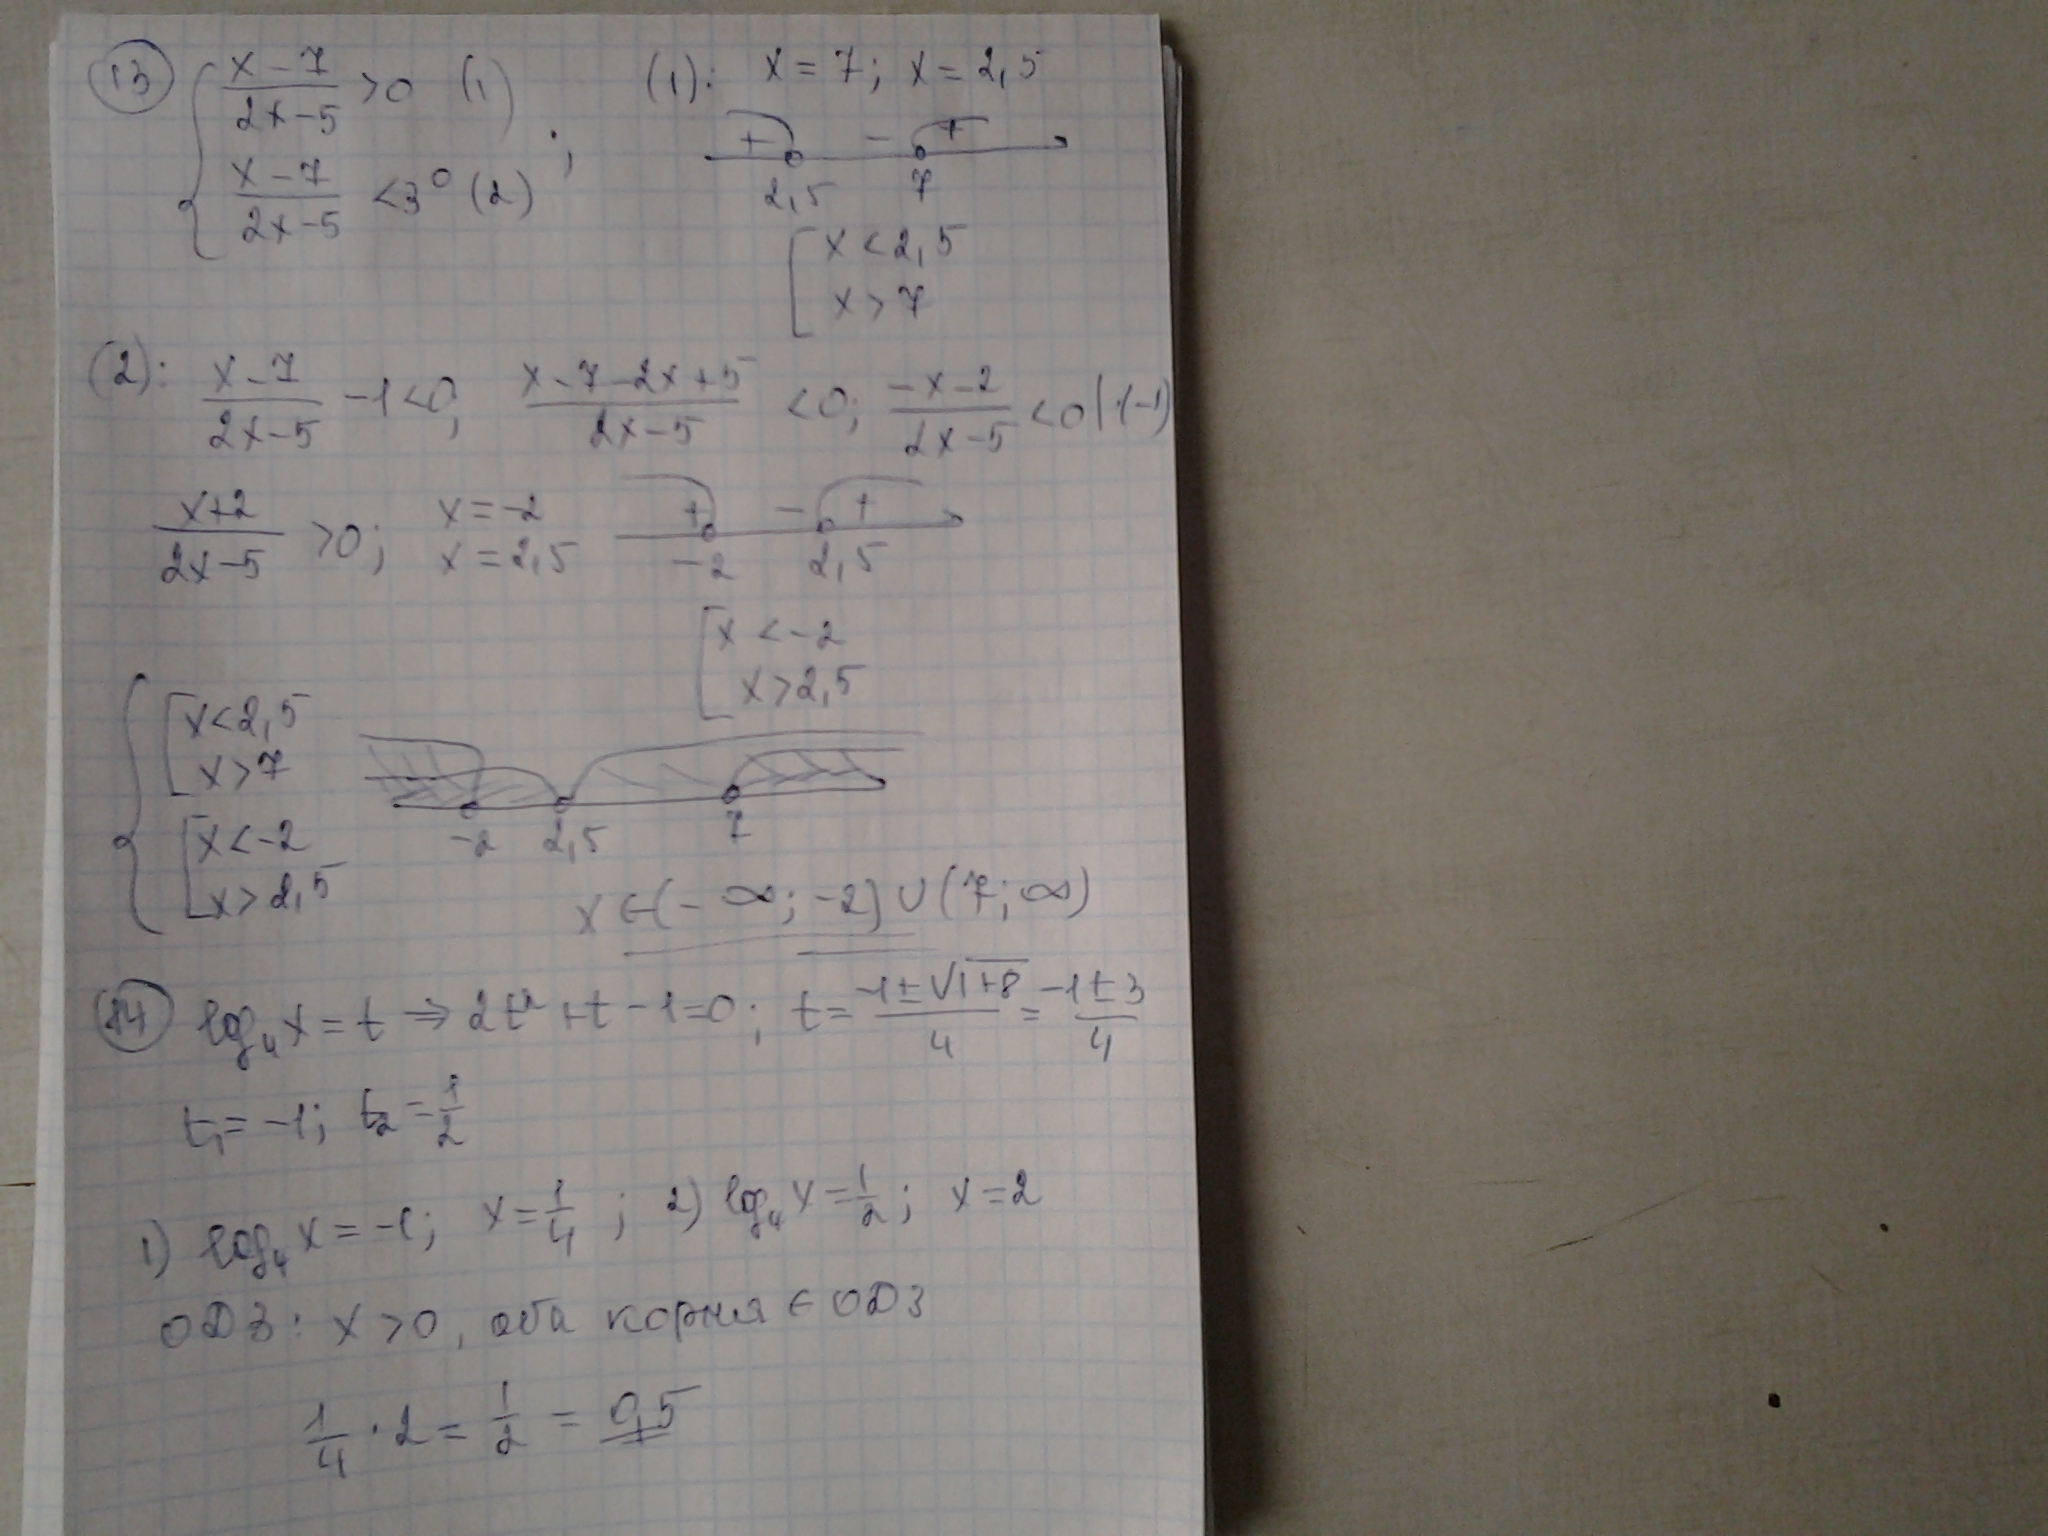 13 { (x-7)/(2x-5) >0 (1) ; (x-7)/(2x-5) <3⁰ (2)
(1): x=7; x=2,5
+ - +
2,5 7
[ x<2,5
x>7
(2): (x-7)/(2x-5) -1<0; (x-7-2x+5)/(2x-5) <0; (-x-2)/(2x-5) <0 |·(-1)
(x+2)/(2x-5) >0; x=-2 x=2,5
+ - +
-2 2,5
[ x<-2
x>2,5
{ [ x<2,5
x>7
[ x<-2
x>2,5
-2 2,5 7
x∈(-∞;-2)∪(7;∞)
14 log₄x=t ⇒ 2t²+t-1=0; t= (-1±√1+8)/4 = (-1±3)/4
t₁=-1; t₂=1/2
1) log₄x=-1; x=1/4; 2) log₄x=1/2; x=2
ОДЗ: x>0, оба корня ∈ ОДЗ
1/4 · 2 = 1/2 = 0,5